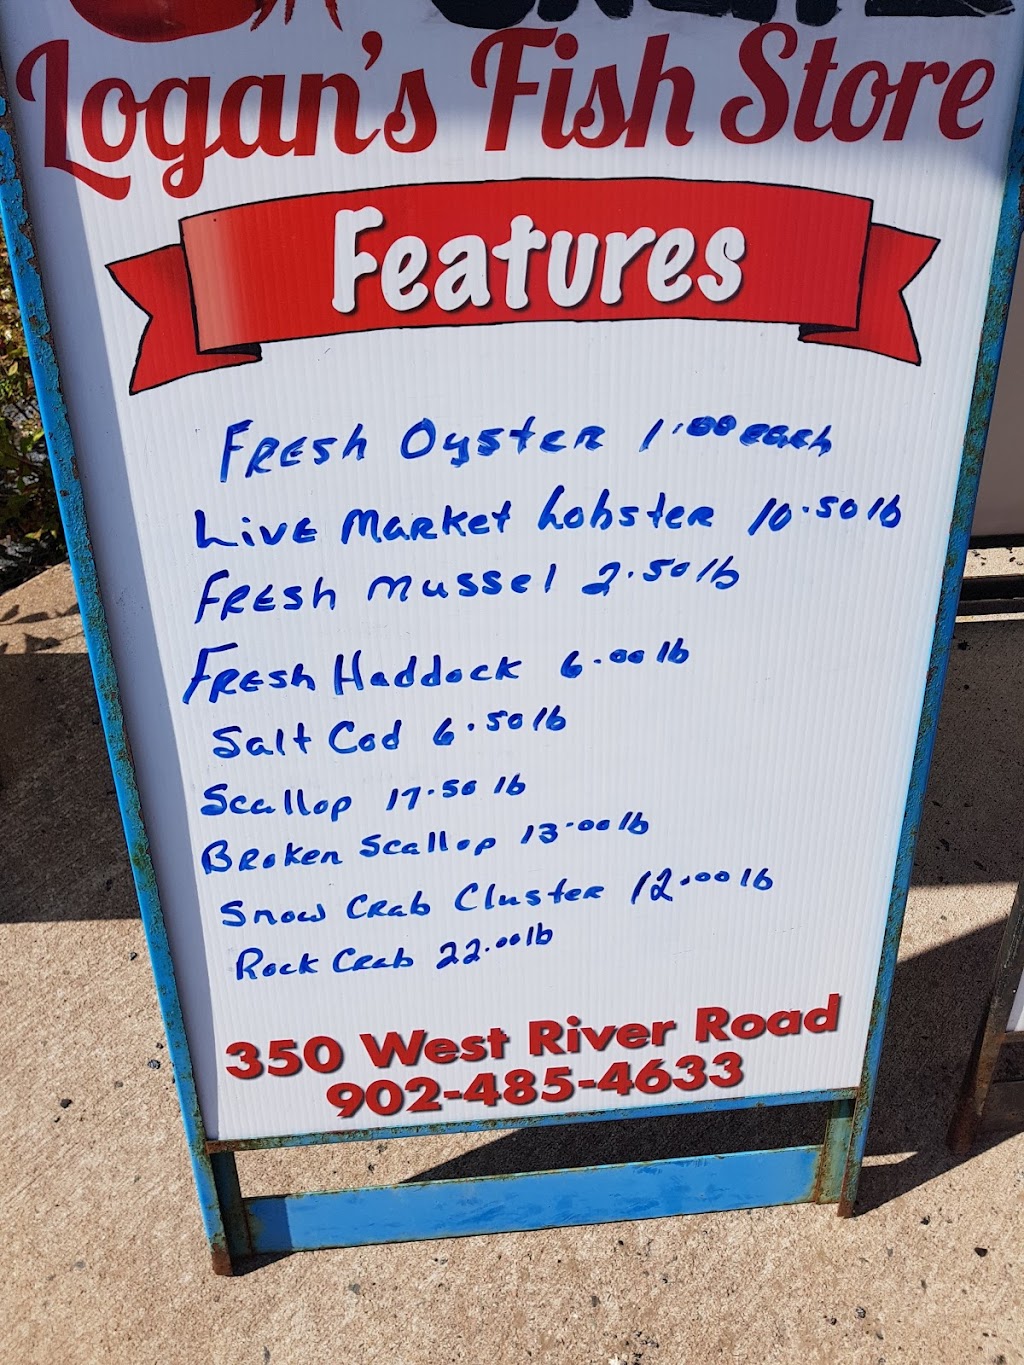 Logan's Fish Store
Features
Fresh Oyster 1.00 each
Live Market Lobster 10.50 lb
Fresh Mussel 2.50 lb
Fresh Haddock 6.00 lb
Salt Cod 6.50 lb
Scallop 17.50 lb
Broken Scallop 13.00 lb
Snow Crab Cluster 12.00 lb
Rock Crab 22.00 lb
350 West River Road
902-485-4633